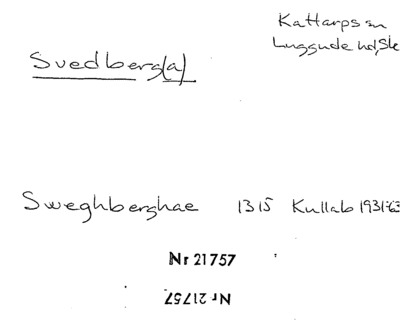 Kattarps sn
Luggude hd, Sk
Svedberg(a)
Sweghberghae 1315 Kullab 1931-63
Nr 21757
Nr 21757